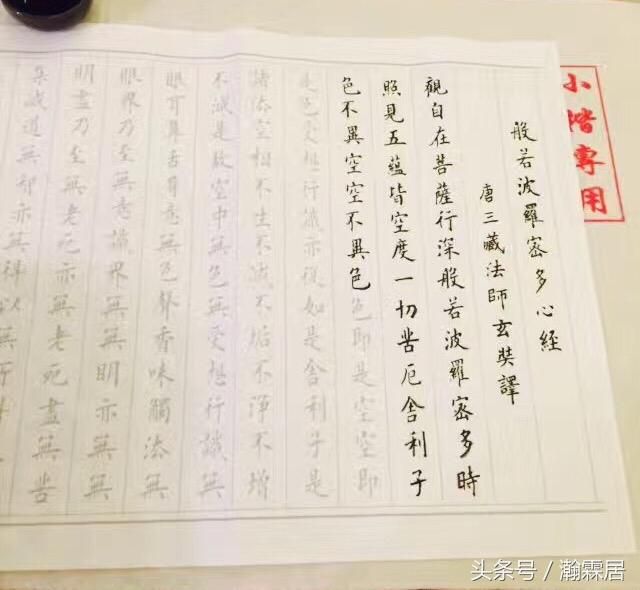 小楷專用
般若波羅密多心經
唐三藏法師玄奘譯
觀自在菩薩行深般若波羅密多時
照見五蘊皆空度一切苦厄舍利子
色不異空空不異色色即是空空即
是色受想行識亦復如是舍利子是
諸法空相不生不滅不垢不淨不增
不減是故空中無色無受想行識無
眼耳鼻舌身意無色聲香味觸法無
眼界乃至無意識界無無明亦無無
明盡乃至無老死亦無老死盡無苦
集滅道無智亦無得以無所
头条号 / 瀚霖居